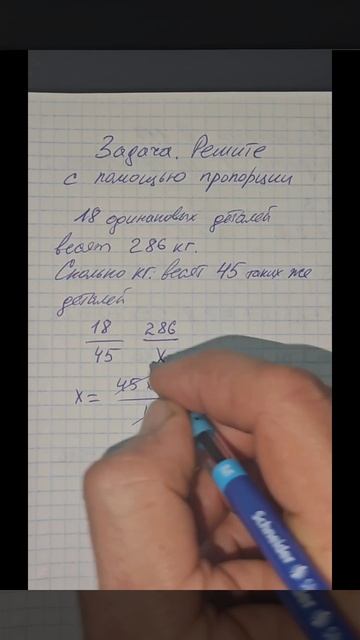 Задача. Решите
с помощью пропорции
18 одинаковых деталей
весят 286 кг.
Сколько кг. весят 45 таких же
деталей
18 286
45 x
x = 45
Schneider